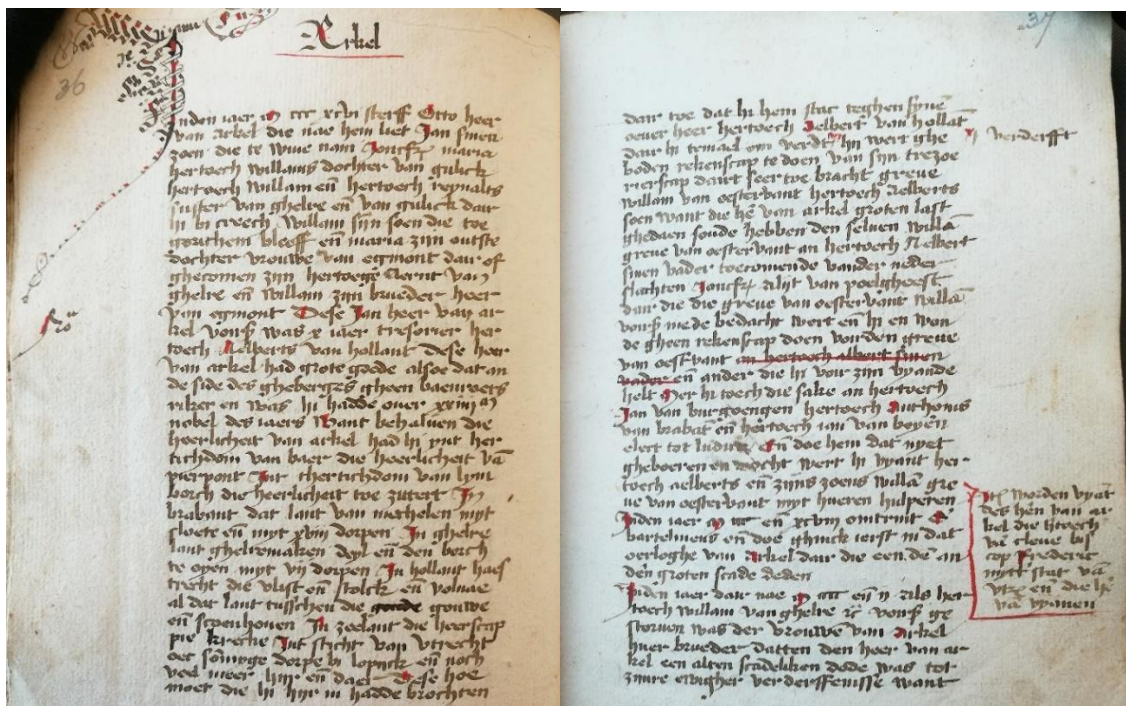 36
Arkel
Inden iaer m ccc xcvi sterff Otto heer
van Arkel die nae hem liet Jan sinen
zoen die te wiue nam Joncfr maria
hertoech willams dochter van gulick
hertoech willam en hertoech reynalts
suster van ghelre en van gulick dair
hi bi creech willam sijn soen die toe
gorichem bleeff en maria zijn outste
dochter vrouwe van egmont dair of
ghecomen zijn hertoege Aernt van
ghelre en willam zijn brueder heer
van egmont Dese Jan heer van ar
kel vors was x iaer tresorier her
toech Aelberts van hollant Dese heer
van arkel had grote goede alsoe dat an
de side des gheberges gheen baenroets
riker en was hi hadde ouer xxiiij m
nobel des iaers Want behaluen die
heerlicheit van arkel had hi ynt her
tichdom van baer die heerlicheit va
pierpont Int thertichdom van lym
borch die heerlicheit toe zutert In
brabant dat lant van mechelen myt
sloete en myt xviij dorpen In ghelre
lant ghelremalsen deyl en den berch
te oyen myt vij dorpen In hollant haes
trecht die vlist en stolck en
al dat lant tusschen die goude gouwe
en scoenhouen In zeelant die heerscap
pie kricke Int sticht van utrecht
oec somyge dorpe bi lopick en noch
veel meer hijr en daer Dese hoe
moet die hi hijr in hadde brochten
37
dair toe dat hi hem stac teghen syne
oeuer heer hertoech Aelbert van hollat
dair hi temael om verdt hi wert ghe
verderfft
boden rekenscap te doen van sijn trezoe
rierscap dairt seer toe bracht greue
willam van oestervant hertoech Aelberts
soen want die he van arkel groten last
ghedaen soude hebben den seluen willa
greue van oestervant an hertoech Aelbert
sinen vader toecomende vander neder
slachten Joncfr Alijt van poelgheest
dair die die greue van oestervant willa
vors mede bedacht wert en hi en won
de gheen rekenscap doen vor den greue
van oestvant an hertoech albert sinen
vader en ander die hi voir zijn vyande
helt Mer hi toech die sake an hertoech
Jan van burgoengen hertoech Anthonis
van brabat en hertoech ian van boyen
elect tot ludick En doe hem dat nyet
gheboeren en mocht wert hi vyant her
toech aelberts en zijns zoens willa gre
ue van oestervant myt hueren hulperen
Inden iaer m ccc en xcviij omtrint
bartelmeus en doe ghinck ierst in dat
oerloghe van Arkel dair die een de an
den groten scade deden
Inden iaer dair nae m cccc en ij als her
toech willam van ghelre vors ge
storuen was der vrouwe van Arkel
huer brueder datten den heer van ar
kel een alten scadeliken dode was tot
zinre ewigher verderffenisse want
It worden vyat
des hen van ar
kel die htoech
va cleue bis
cop Frederic
mytt stat va
utr en die he
va vyanen